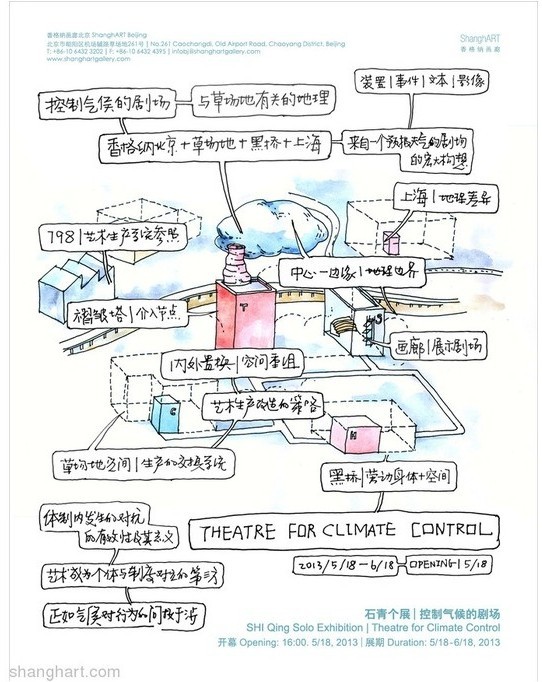 香格纳画廊北京 ShanghART Beijing
北京市朝阳区机场辅路草场地261号 | No.261 Caochangdi, Old Airport Road, Chaoyang District, Beijing
T: +86-10 6432 3202 | F: +86-10 6432 4395 | infobj@shanghartgallery.com
www.shanghartgallery.com
ShanghART
香格纳画廊
装置|事件|文本|影像
控制气候的剧场
与草场地有关的地理
香格纳北京+草场地+黑桥+上海
来自一个预报天气的剧场
的宏大构想
上海|地理差异
798|艺术生产系统参照
中心—边缘|地理边界
褶皱塔|介入节点
T
S
画廊|展示剧场
内外置换|空间重组
艺术生产改造的策略
C
H
草场地空间|生产的交换系统
黑桥|劳动身体+空间
体制内发生的对抗
的有效性及其意义
THEATRE FOR CLIMATE CONTROL
2013/5/18—6/18
OPENING|5/18
艺术做为个体与制度对立的第三方
正如气候对行为的间接干涉
石青个展 | 控制气候的剧场
SHI Qing Solo Exhibition | Theatre for Climate Control
开幕 Opening: 16:00. 5/18, 2013 | 展期 Duration: 5/18-6/18, 2013
shanghart.com